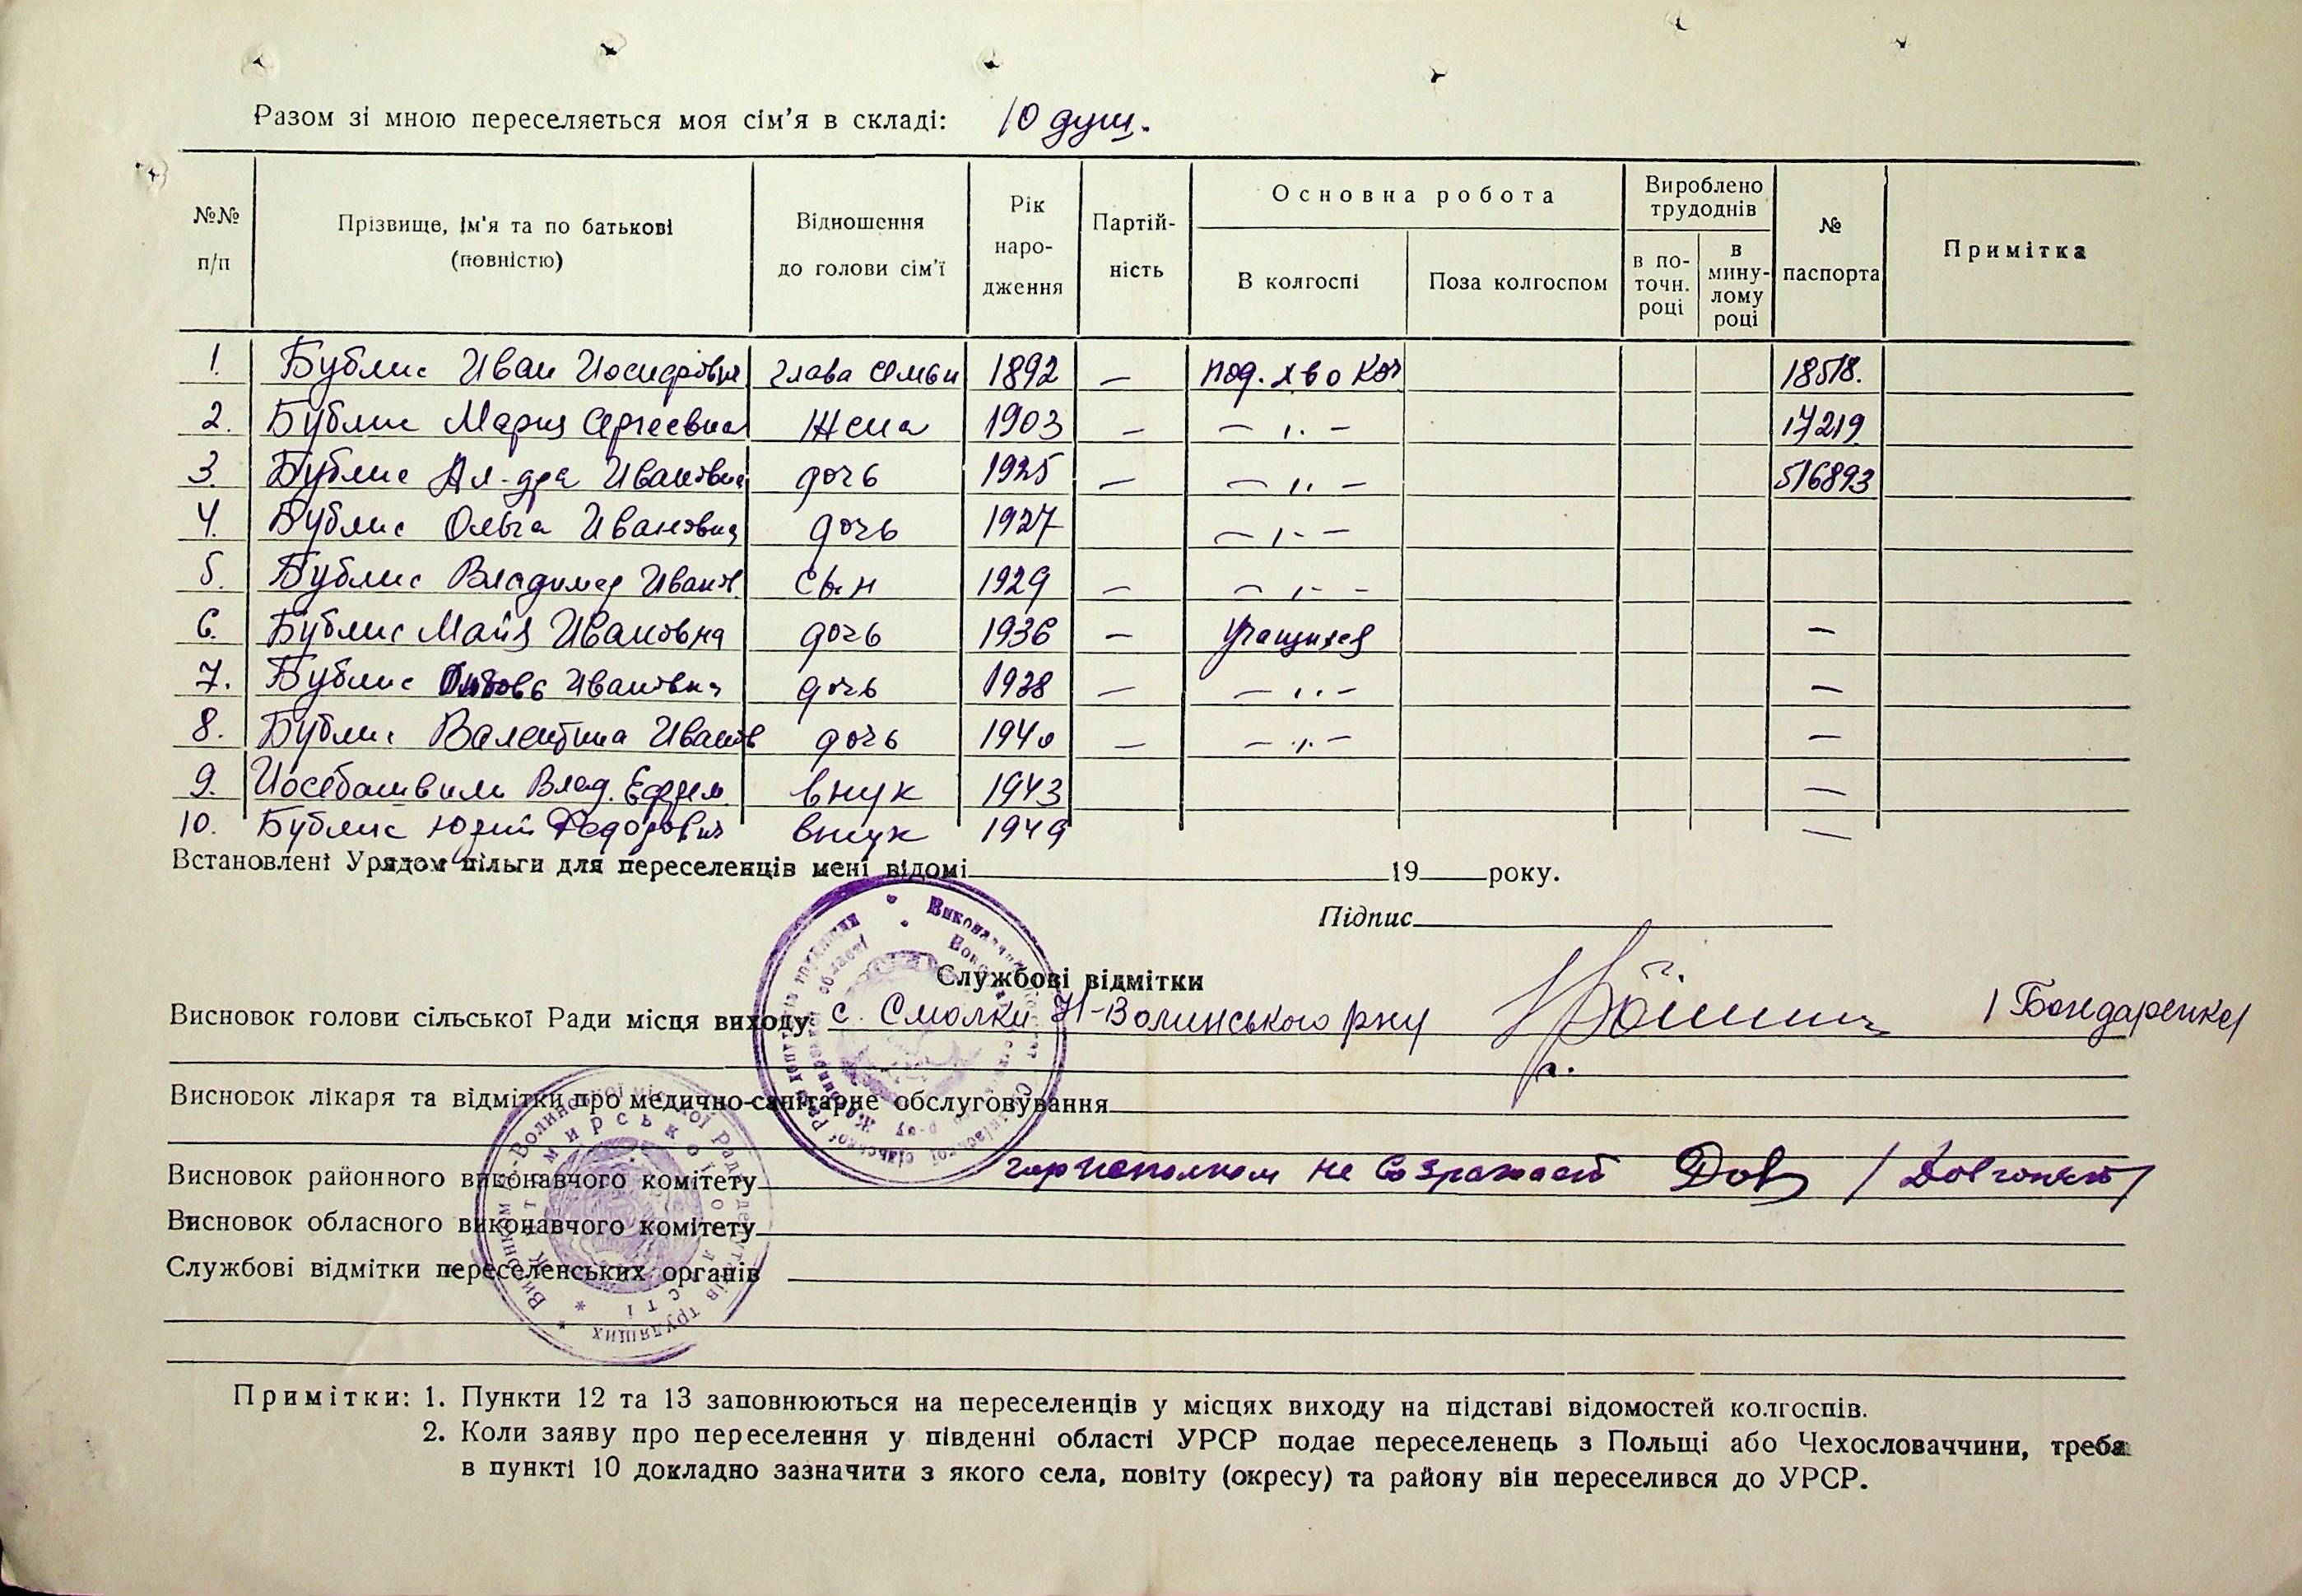 Разом зі мною переселяється моя сім'я в складі: 10 душ.
№№ п/п Прізвище, ім'я та по батькові (повністю) Відношення до голови сім'ї Рік народження Партійність Основна робота В колгоспі Поза колгоспом Вироблено трудоднів в поточн. році в минулому році № паспорта Примітка
1. Бублис Иван Иосифович глава семьи 1892 —
2. Бублис Мария Сергеевна жена 1903 — — " — 17219
3. Бублис Ал-дра Ивановна дочь 1925 — — " — 516893
4. Бублис Ольга Ивановна дочь 1927 — " —
5. Бублис Владимер Иванов. сын 1929 — — " —
6. Бублис Майя Ивановна дочь 1936 — учащихся —
7. Бублис Любовь Ивановна дочь 1938 — — " — —
8. Бублис Валентина Иванов дочь 1940 — — " — —
9. Иосебашвили Влад. Ефрем. внук 1943 —
10. Бублис Юрий Федорович внук 1949 —
Встановлені Урядом пільги для переселенців мені відомі 19 року.
Підпис
Службові відмітки
Висновок голови сільської Ради місця виходу с. Смолки Н-Волинського р-ну / Бондаренко /
Висновок лікаря та відмітки про медично-санітарне обслуговування
Висновок районного виконавчого комітету горисполком не возражает
Висновок обласного виконавчого комітету
Службові відмітки переселенських органів
Примітки: 1. Пункти 12 та 13 заповнюються на переселенців у місцях виходу на підставі відомостей колгоспів.
2. Коли заяву про переселення у південні області УРСР подає переселенець з Польщі або Чехословаччини, треба
в пункті 10 докладно зазначити з якого села, повіту (окресу) та району він переселився до УРСР.